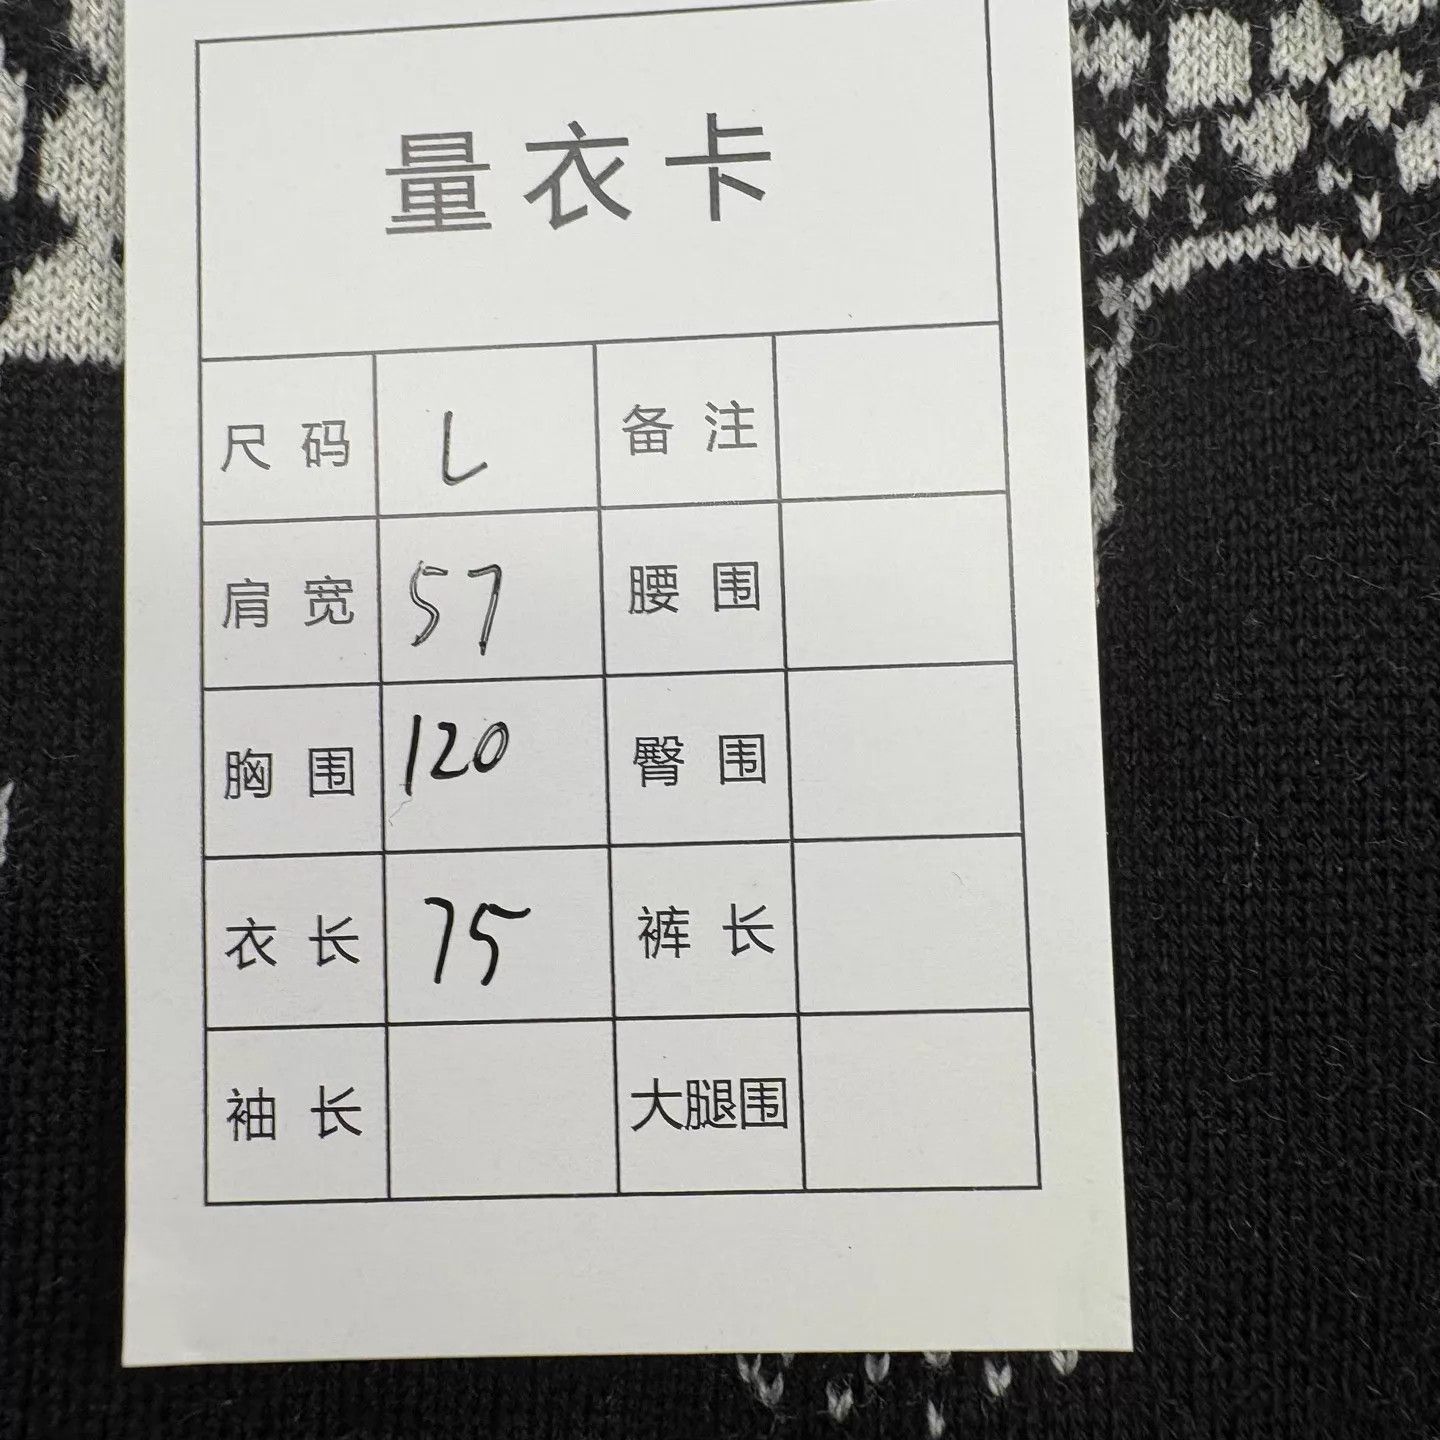 量衣卡
尺码 L 备注
肩宽 57 腰围
胸围 120 臀围
衣长 75 裤长
袖长 大腿围